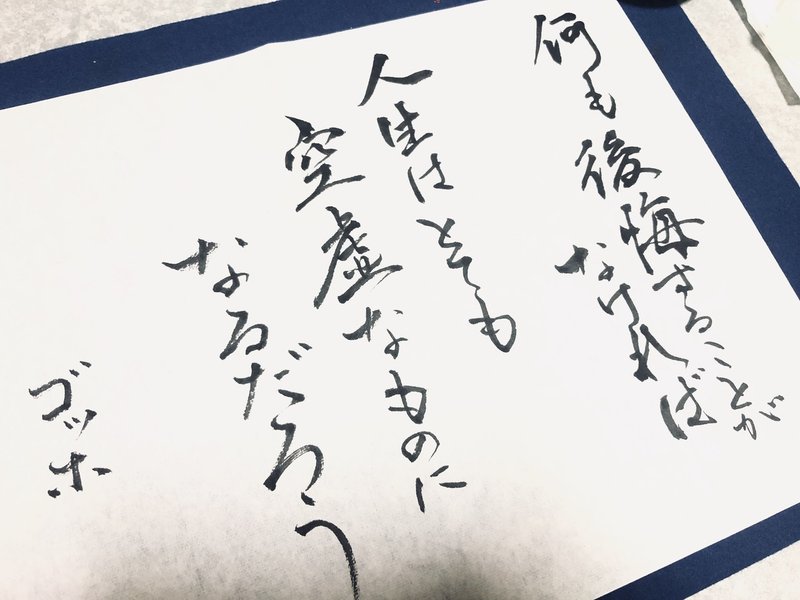 何も後悔することが
なければ
人生はとても
空虚なものに
なるだろう
ゴッホ